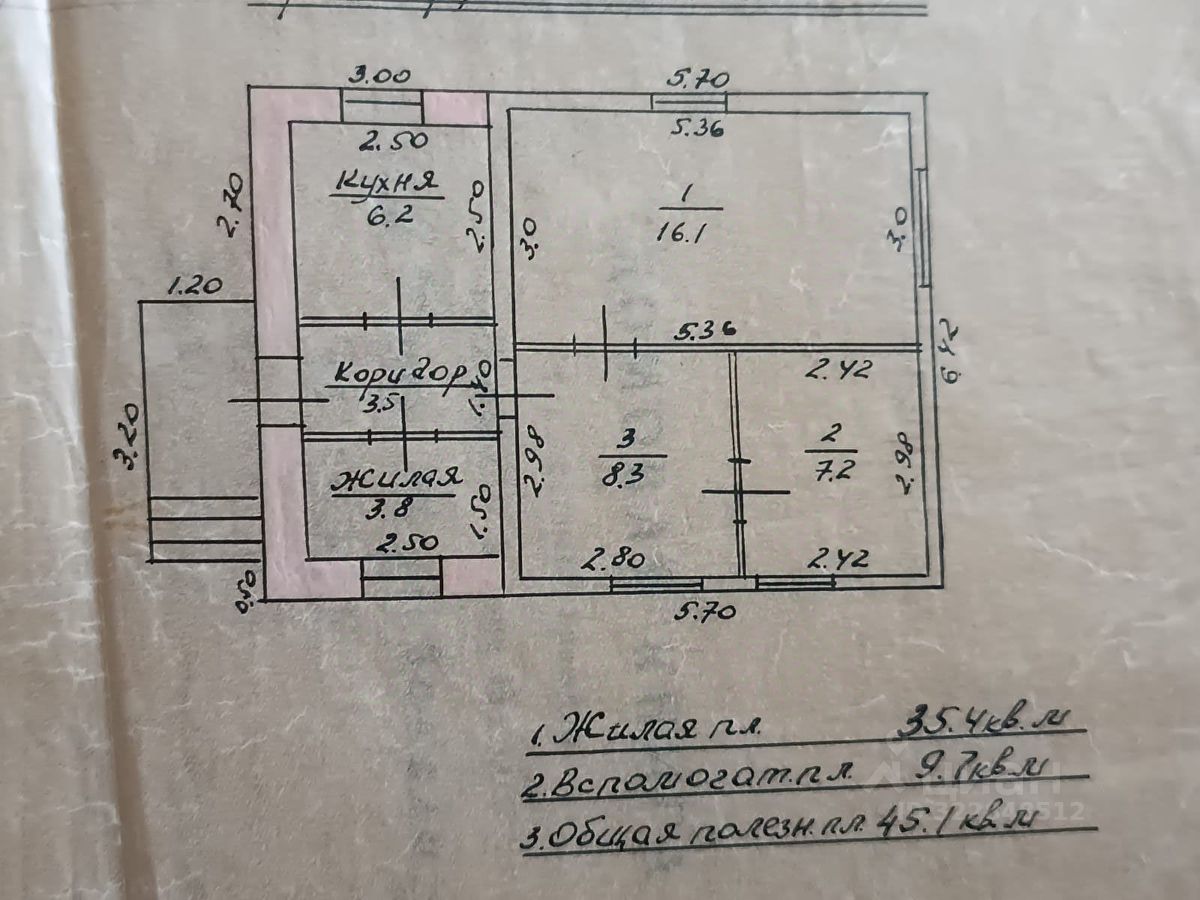 3.00
5.70
2.50
5.36
Кухня
6.2
2.70
2.50
1
16.1
3.0
3.0
1.20
5.36
6.42
2.42
Коридор
3.5
3.20
2.98
3
8.3
2
7.2
2.98
Жилая
3.8
1.50
2.50
2.80
2.42
0.50
5.70
1. Жилая пл. 35.4 кв.м
2. Вспомогат.пл. 9.7 кв.м
3. Общая полезн.пл. 45.1 кв.м
циан